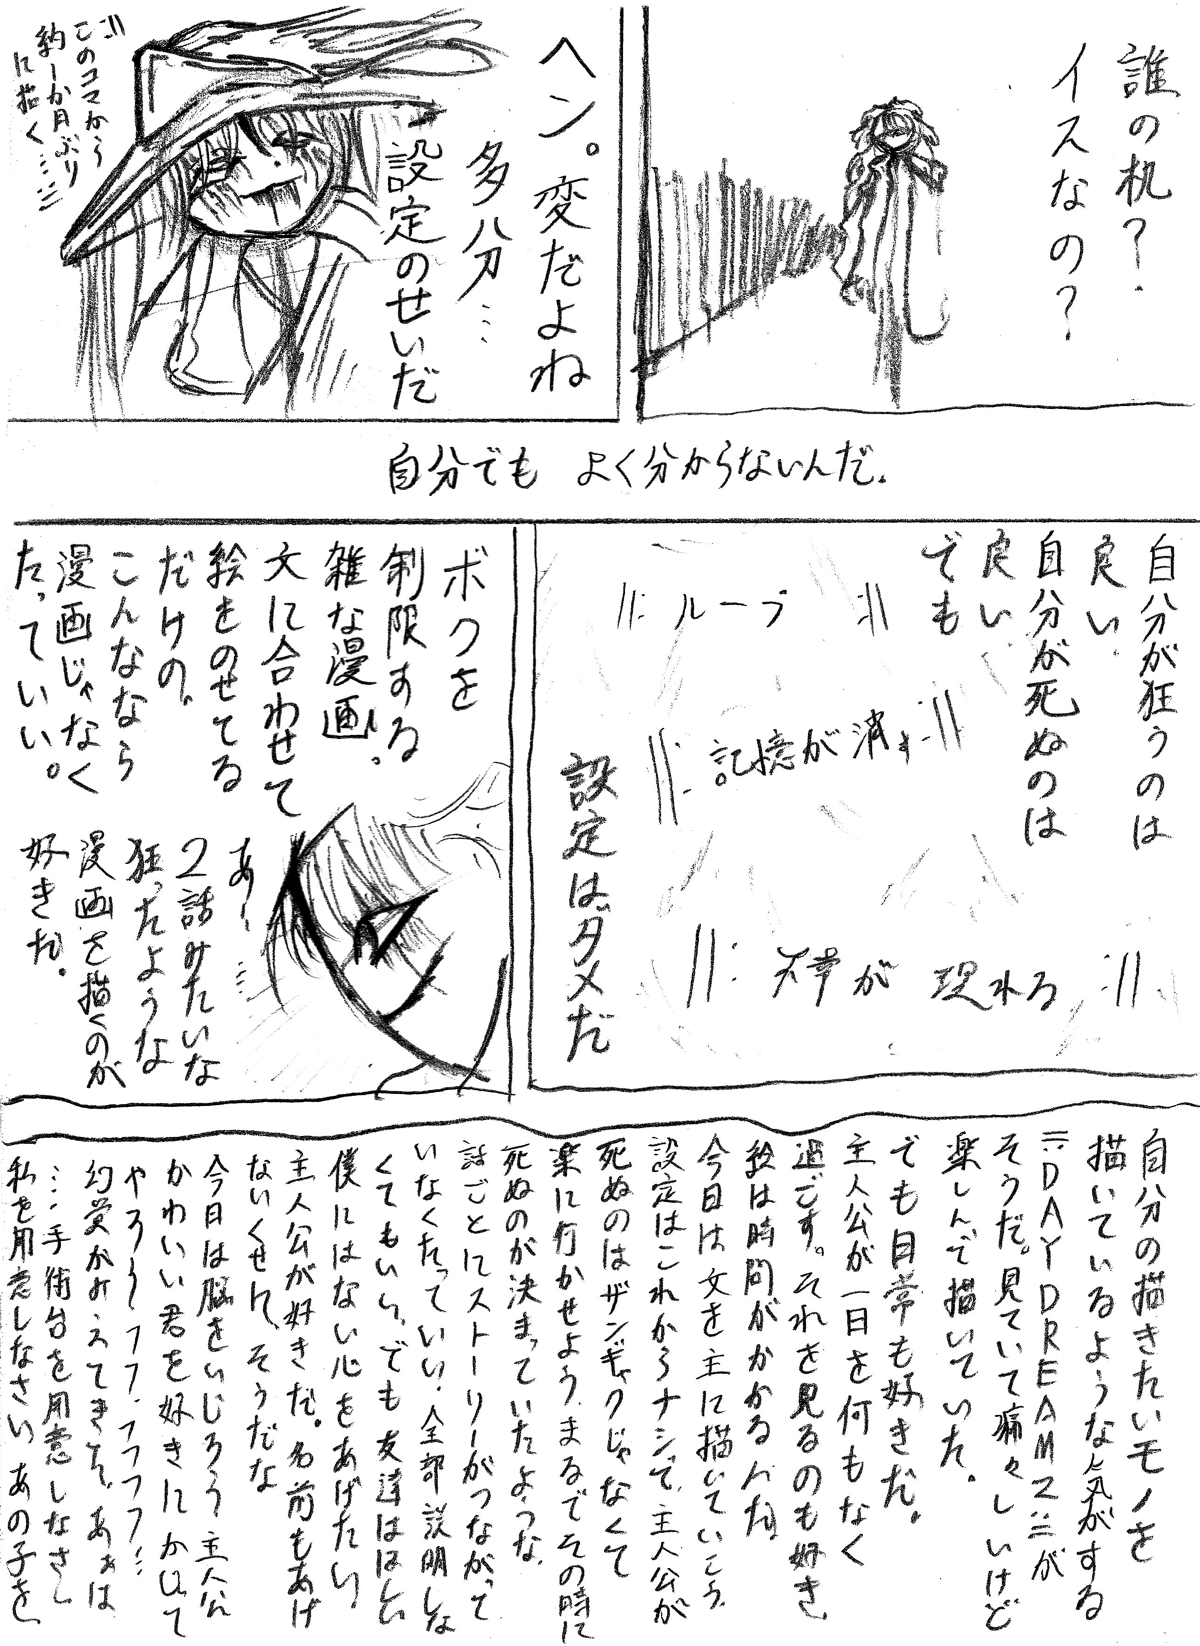 誰の机？
イスなの？
ヘン。変だよね
多分…
設定のせいだ
このコマから
約一か月ぶり
に描く…
自分でも よく分からないんだ.
自分が狂うのは
良い
自分が死ぬのは
良い
でも
ループ
記憶が消す
天幸が 現れる
設定はダメだ
ボクを
制限する
雑な漫画。
文に合わせて
絵をのせてる
だけの。
こんななら
漫画じゃなく
たっていい。
あー…
2話みたいな
狂ったような
漫画を描くのが
好きだ。
自分の描きたいモノを
描いているような気がする
DAYDREAM2が
そうだ。見ていて痛々しいけど
楽しんで描いていた。
でも日常も好きだ。
主人公が一日を何もなく
過ごす。それを見るのも好き
絵は時間がかかるんだ。
今日は文を主に描いていこう。
設定はこれからナシで、主人公が
死ぬのはザンギャクじゃなくて
楽に行かせよう。まるでその時に
死ぬのが決まっていたような。
話ごとにストーリーがつながって
いなくたっていい。全部説明しな
くてもいい。でも友達はほしい
僕にはない心をあげたい。
主人公が好きだ。名前もあげ
ないくせに、そうだな
今日は脳をいじろう。主人公
かわいい君を好きにかじって
やろう フフ・フフフフ…
幻覚がみえてきた、あぁは
…手術台を用意しなさい
私を用意しなさい あの子を